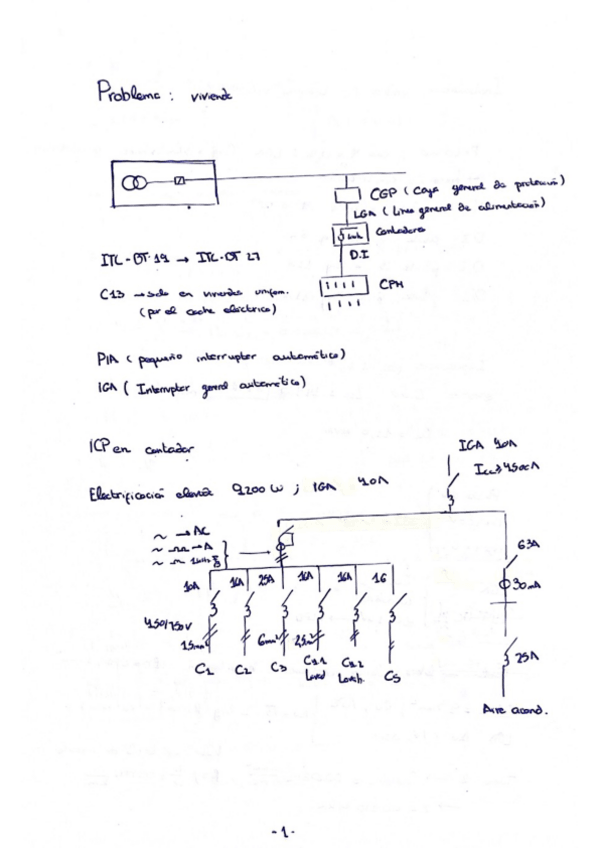 Problema: vivienda
CGP (Caja general de protección)
LGA (Linea general de alimentación)
Contadores
D.I
ITC-BT-19 → ITC-BT 27
C13 → solo en viviendas unifam.
(por el coche eléctrico)
CPM
PIA (pequeño interruptor automático)
IGA (Interruptor general automático)
ICP en contador
IGA 40A
Icc ≥ 4500A
Electrificación elevada 9200 W ; IGA 40A
~ → AC
~ → A
63A
30mA
10A 16A 25A 16A 16A 16
450/750V
1,5mm² 6mm² 2,5mm²
25A
C1 C2 C3 C4.1 C4.2 C5
Lavad Lavab.
Aire acond.
-1-